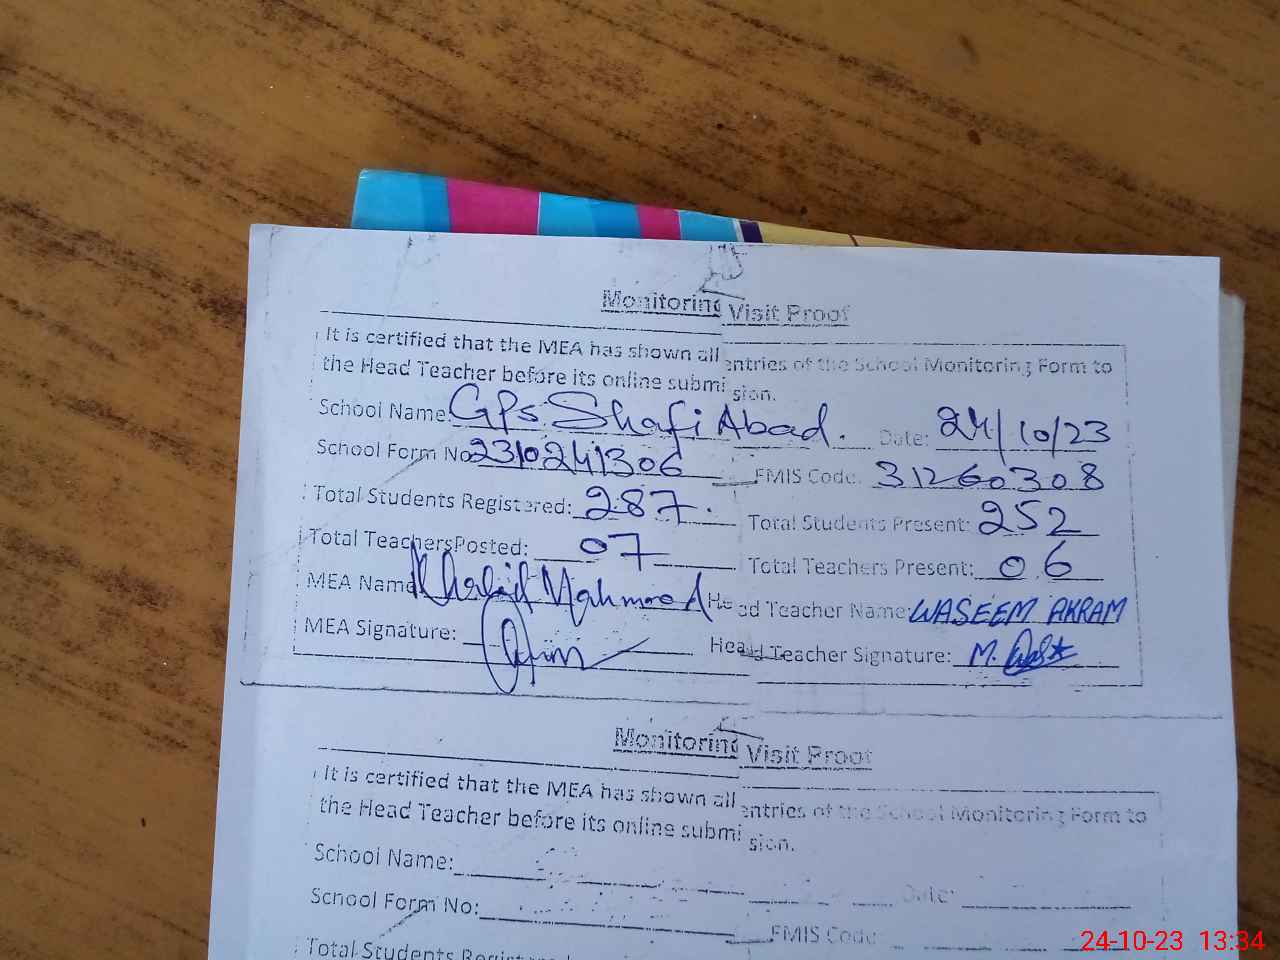 Monitoring Visit Proof
It is certified that the MEA has shown all entries of the School Monitoring Form to
the Head Teacher before its online submission.
School Name: GPS Shafi Abad. Date: 24/10/23
School Form No 2310241306 EMIS Code: 31260308
Total Students Registered: 287. Total Students Present: 252
Total Teachers Posted: 07 Total Teachers Present: 06
MEA Name: Khalid Mahmood Head Teacher Name: WASEEM AKRAM
MEA Signature: Head Teacher Signature: M.
Monitoring Visit Proof
It is certified that the MEA has shown all entries of the School Monitoring Form to
the Head Teacher before its online submission.
School Name: Date:
School Form No: EMIS Code:
Total Students
24-10-23 13:34